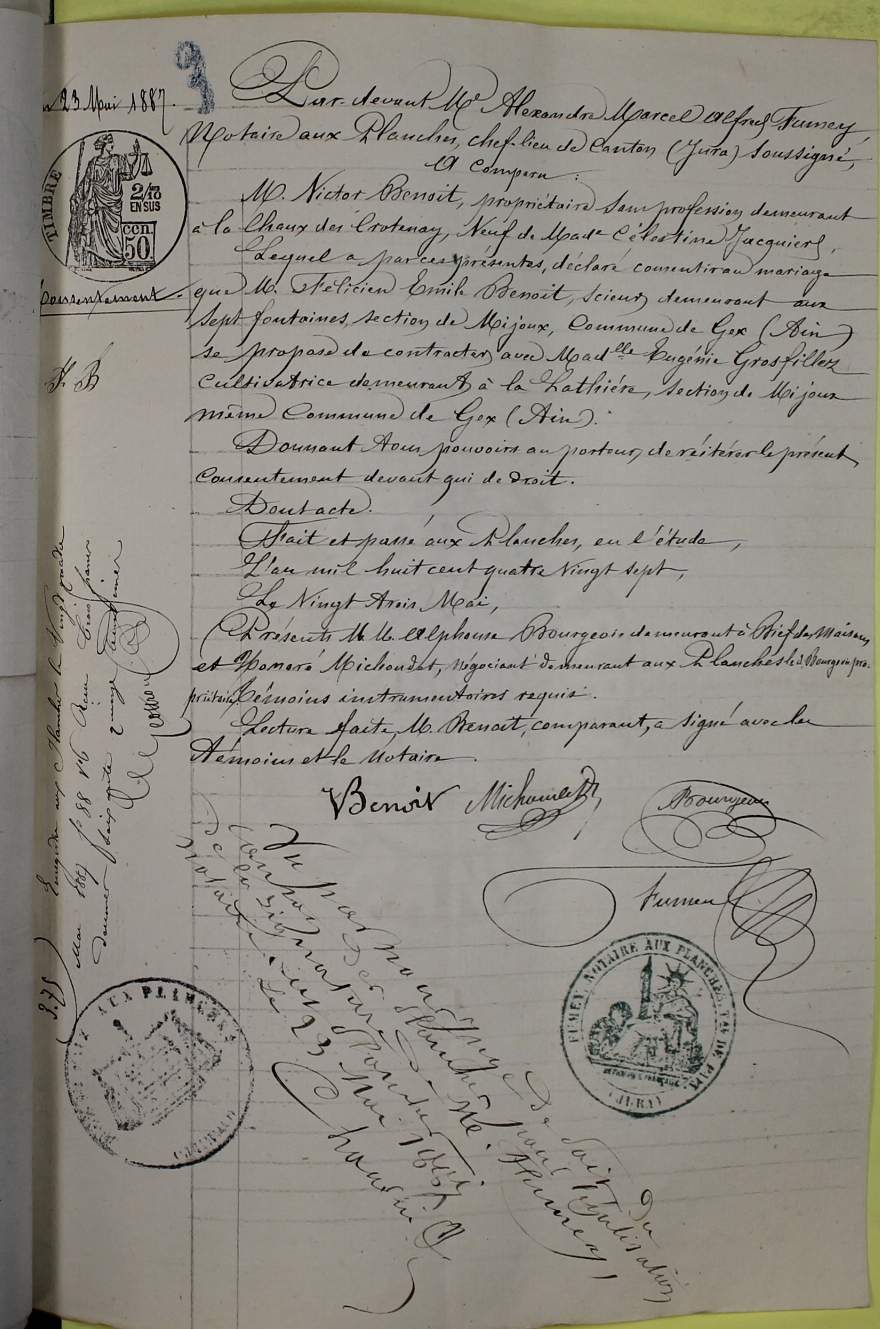 23 Mai 1887.
TIMBRE
2/10
EN SUS
CEN.
50
Consentement.
F. B
Par-devant Me Alexandre Marcel Alfred Fumey,
Notaire aux Planches, chef-lieu de Canton (Jura) soussigné,
A comparu :
M. Victor Benoit, propriétaire sans profession demeurant
à la Chaux des Crotenay, Veuf de Made Célestine Jacquier,
Lequel a par ces présentes, déclaré consentir au mariage
que M. Félicien Emile Benoit, scieur, demeurant aux
Sept fontaines, section de Mijoux, Commune de Gex (Ain)
se propose de contracter avec Madelle Eugénie Grosfillez
Cultivatrice demeurant à la Lathière, section de Mijoux
même Commune de Gex (Ain).
Donnant tous pouvoirs au porteur, de réitérer le présent
consentement devant qui de droit.
Dont acte.
Fait et passé aux Planches, en l'étude,
L'an mil huit cent quatre Vingt sept,
Le Vingt trois Mai,
Présents M.M. Alphonse Bourgeois demeurant à Bief des Maisons
et Honoré Michoudet, négociant demeurant aux Planches, led. Bourgeois pro-
priétaire, témoins instrumentaires requis.
Lecture faite, M. Benoit, comparant, a signé avec les
témoins et le Notaire.
Benoit Michoudet Bourgeois
Fumey
Enregistré aux Planches le Vingt
Mai 1887 f° 88 Reçu trois francs
3.75
Vu par nous Juge de Paix du
Canton des Planches pour légalisation
de la signature de Me Fumey,
Notaire
Le 23 Mai 1887
FUMEY, NOTAIRE AUX PLANCHES
(JURA)
AUX PLANCHES